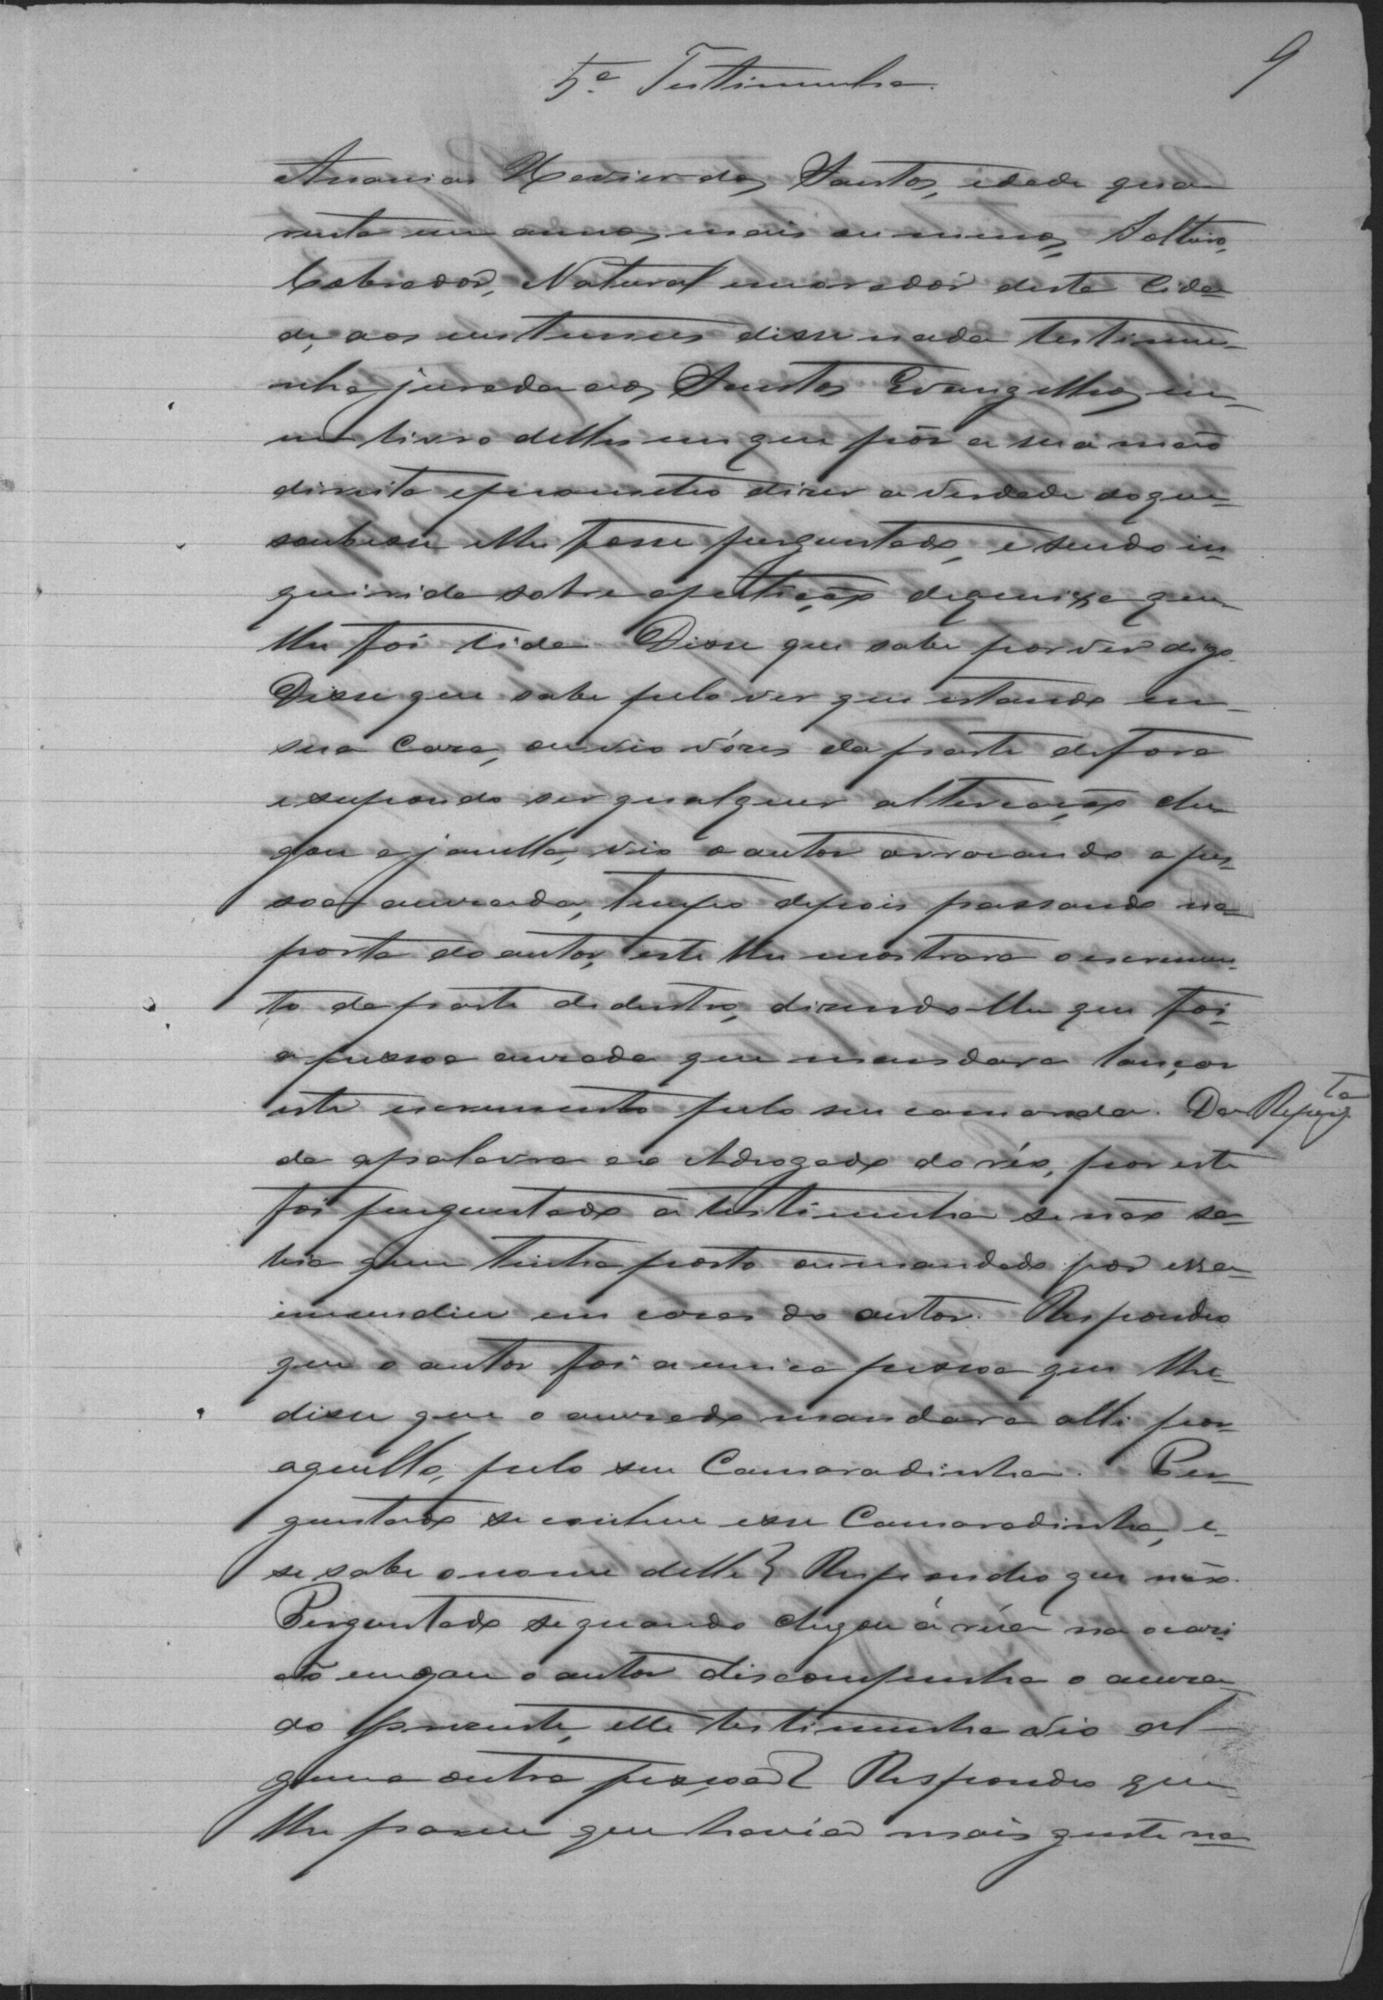 9
5ª Testimunha.
Ananias Xavier dos Santos, idade qua-
renta um annos mais ou menos, Solteiro,
Cobrador, Natural e morador desta Cida-
de, aos custumes disse nada testimu-
nha jurada aos Santos Evangelhos em
um livro delles em que pôs a sua mão
direita e prometteo dizer a verdade do que
soubesse e lhe fosse perguntado, e sendo in-
quirida sobre a petição de queixa que
lhe foi lida Disse que sabe por ver digo
Disse que sabe pelo ver que estando em
sua caza, ouvio vózes da parte de fora
e supondo ser qualquer altercação che-
gou a janella, vio o autor arrocando a pes-
soa accuzada, tempo depois passando na
porta do autor, este lhe mostrara o escremen-
to da parte de dentro, dizendo lhe que foi
a pessoa accuzada que mandara lançar
este escremento pelo seu camarada. Da
Repergta
da a palavra ao Advogado do réo, por este
foi perguntado a testimunha se não sa-
bia quem tinha posto ou mandado por essa
immundicie em caza do autor. Respondeo
que o autor foi a unica pessoa que lhe
disse que o accuzado mandara alli por
aquillo, pelo seu Camaradinha. Per-
guntado se conhece esse Camaradinha, e
se sabe o nome delle? Respondeo que não.
Perguntado se quando chegou á rua na ocazi-
ão em que o autor discompunha o accuza-
do prezente, elle testimunha vio al-
guma outra pessoa? Respondeo que
lhe parece que havia mais gente na